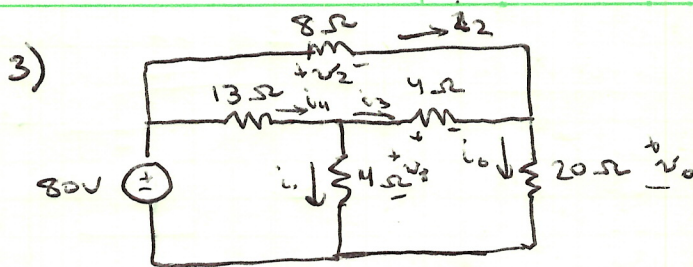 8Ω → i2
3)
+ v2 -
13Ω → i4 i3 → 4Ω
+ -
80V + - i1 ↓ 4Ω + - i0 ↓ 20Ω + v0 -